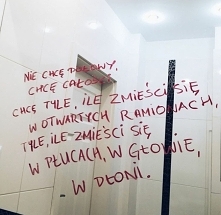 NIE CHCĘ POŁOWY,
CHCĘ CAŁOŚĆ.
CHCĘ TYLE, ILE ZMIEŚCI SIĘ
W OTWARTYCH RAMIONACH,
TYLE, ILE ZMIEŚCI SIĘ
W PŁUCACH, W GŁOWIE,
W DŁONI.